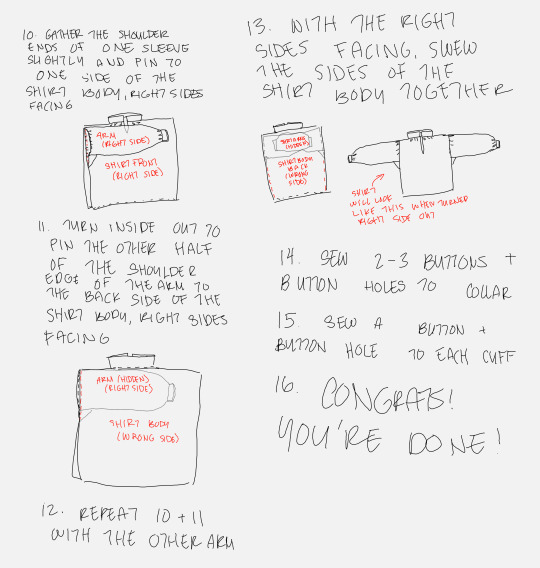 10. GATHER THE SHOULDER
ENDS OF ONE SLEEVE
SLIGHTLY AND PIN TO
ONE SIDE OF THE
SHIRT BODY, RIGHT SIDES
FACING
ARM
(RIGHT SIDE)
SHIRT FRONT
(RIGHT SIDE)
11. TURN INSIDE OUT TO
PIN THE OTHER HALF
OF THE SHOULDER
EDGE OF THE ARM TO
THE BACK SIDE OF THE
SHIRT BODY, RIGHT SIDES
FACING
ARM (HIDDEN)
(RIGHT SIDE)
SHIRT BODY
(WRONG SIDE)
12. REPEAT 10 + 11
WITH THE OTHER ARM
13. WITH THE RIGHT
SIDES FACING, SWEW
THE SIDES OF THE
SHIRT BODY TOGETHER
(HIDDEN)
SHIRT BODY
BACK
(WRONG
SIDE)
SHIRT
WILL LOOK
LIKE THIS WHEN TURNED
RIGHT SIDE OUT
14. SEW 2-3 BUTTONS +
BUTTON HOLES TO COLLAR
15. SEW A BUTTON +
BUTTON HOLE TO EACH CUFF
16. CONGRATS!
YOU'RE DONE!